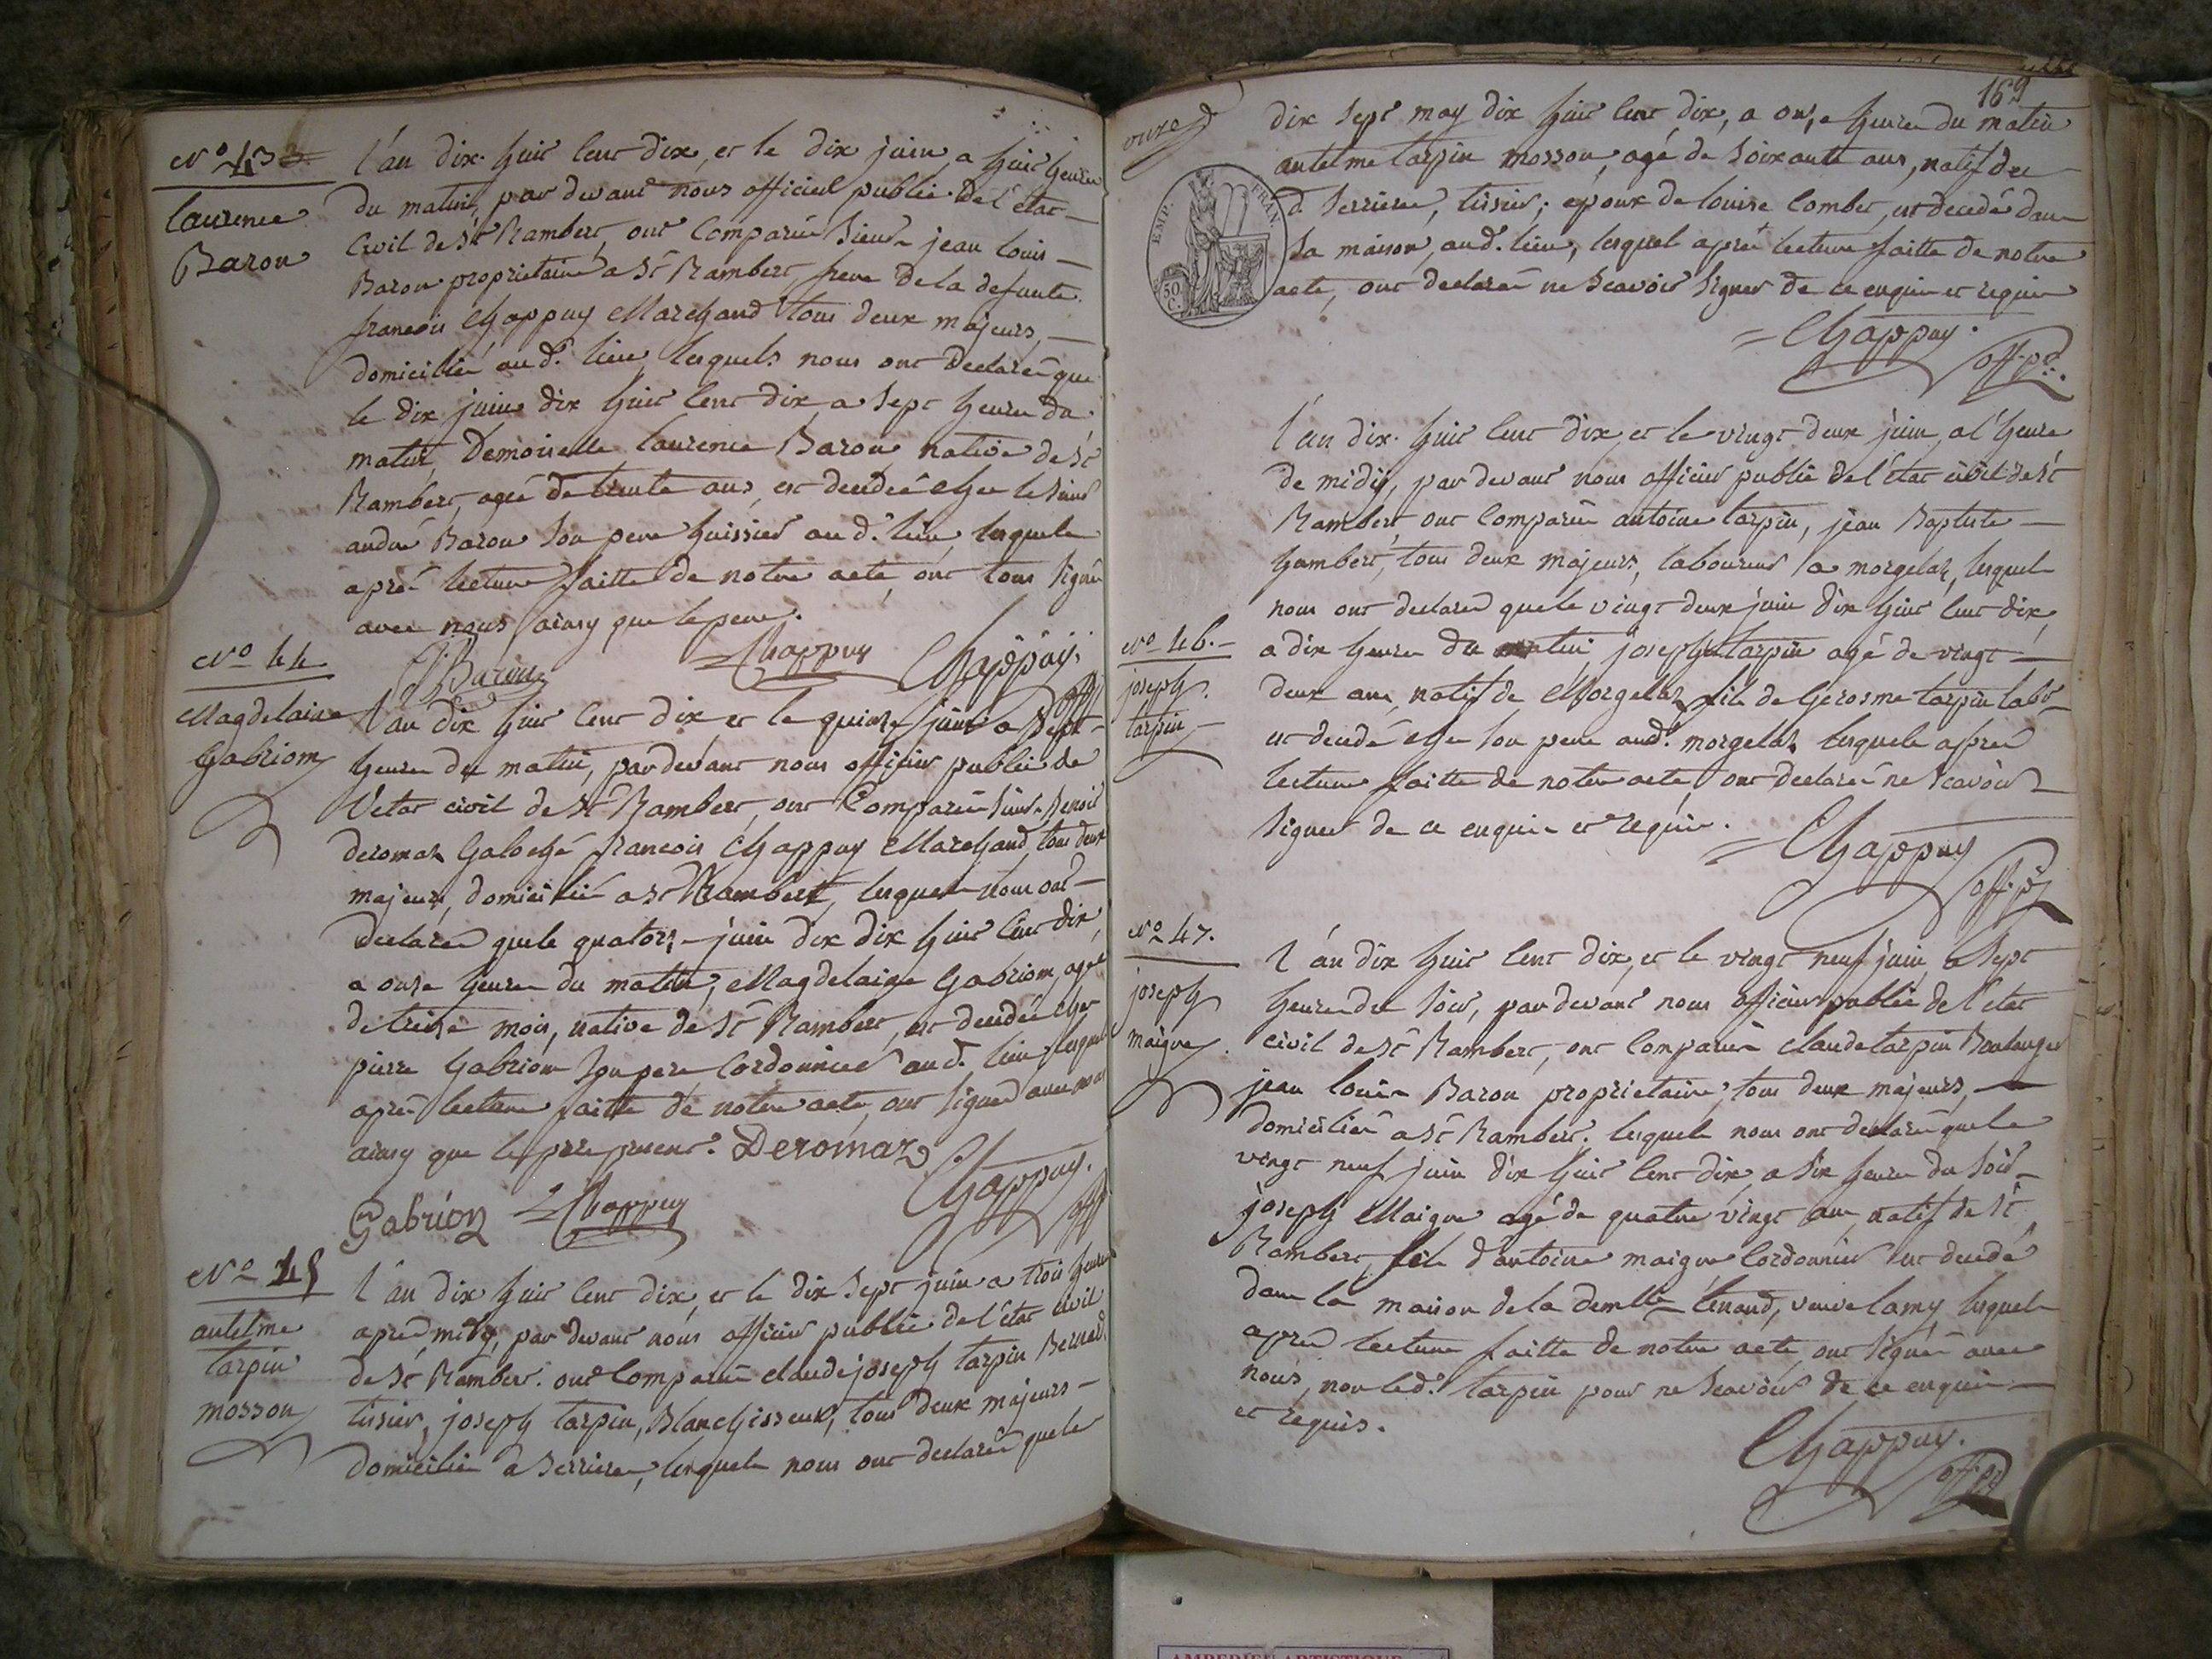 N° 43
Laurence
Baron
L'an dix huit cent dix, et le dix juin a huit heures
du matin, par devant nous officiel public de l'état
Civil de St Rambert, ont Comparus Sieurs jean louis
Baron proprietaire a St Rambert, frere de la defunte
francois Chappuy Marchand tous deux majeurs,
domiciliés aud. lieu, lesquels nous ont declarés que
le dix juin dix huit cent dix a sept heures du
matin, Demoiselle laurence Baron native de St
Rambert, agée de trente ans, est decedée chez le Sieur
andré Baron Son pere huissier aud. lieu, lesquels
aprés lecture faitte de notre acte, ont tous Signés
avec nous ainsy que le pere.
JBaron Chappuy Chappuy. off
N° 44
Magdelaine
Gabriom
L'an dix huit cent dix, et le quinze juin a Sept
heures du matin, par devant nous officier public de
l'etat civil de St Rambert, ont Comparus Sieurs Benoit
deromas Galoché francois Chappuy Marchand, tous deux
majeurs, domiciliés a St Rambert, lesquels nous ont
declarés que le quatorze juin dix dix huit cent dix,
a onze heures du matin, Magdelaine Gabriom, agée
de treize mois, native de St Rambert, est decedée chez
pierre Gabriom Son pere Cordonnier aud. lieu, lesquels
aprés lecture faitte de notre acte, ont Signés avec nous
ainsy que le pere present. Deromaz Chappuy. off
Gabrion Chappuy
N° 45
antelme
tarpin
mosson
L'an dix huit cent dix, et le dix Sept juin a trois heures
aprés midy, par devant nous officier public de l'état civil
de St Rambert. ont Comparus claude joseph tarpin Bernard
tisseur, joseph tarpin, Blanchisseur, tous deux majeurs
domiciliés a Serrieres, lesquels nous ont declarés que le
169
onze
dix Sept may dix huit cent dix, a onze heures du matin
antelme tarpin mosson, agé de Soixante ans, natif de
d. Serrieres, tisseur; epoux de louise Combet, est decedé dans
Sa maison, aud. lieu, lesquels aprés lecture faitte de notre
acte, ont declarés ne Scavoir Signer de ce enquis et requis
EMP. FRAN.
50
C.
Chappuy. off. p.
N° 46.
joseph
tarpin
L'an dix huit cent dix, et le vingt deux juin, a l'heure
de midy, par devant nous officier public de l'état civil de St
Rambert, ont Comparus antoine tarpin, jean Baptiste
hambert, tous deux majeurs, laboureurs a morgelas, lesquels
nous ont declarés que le vingt deux juin dix huit cent dix,
a dix heures du matin joseph tarpin agé de vingt
deux ans, natif de Morgelas, fils de Gerosme tarpin labr
est decedé chez Son pere aud. morgelas lesquels aprés
lecture faitte de notre acte, ont declarés ne Scavoir
Signer de ce enquis et requis.
Chappuy off. p.
N° 47.
joseph
maigre
L'an dix huit cent dix, et le vingt neuf juin, a Sept
heures du Soir, par devant nous officier public de l'etat
civil de St Rambert, ont Comparus claude tarpin Boulanger
jean louis Baron proprietaire, tous deux majeurs,
domiciliés a St Rambert. lesquels nous ont declarés que le
vingt neuf juin dix huit cent dix, a Six heures du Soir
joseph Maigre agé de quatre vingt ans, natif de St
Rambert, fils d'antoine maigre Cordonnier est decedé
dans la maison de la demlle tenand, veuve lamy, lesquels
aprés lecture faitte de notre acte, ont Signés avec
nous, non led. tarpin pour ne Scavoir de ce enquis
et requis.
Chappuy. off. p.